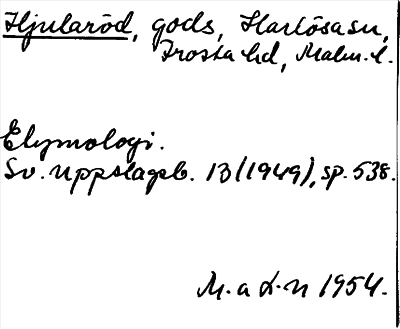 Hjularöd, gods, Harlösasn,
Frosta hd, Malm. l.
Etymologi.
Sv. Uppslagsb. 13 (1949), sp. 538.
M. a L-n 1954.